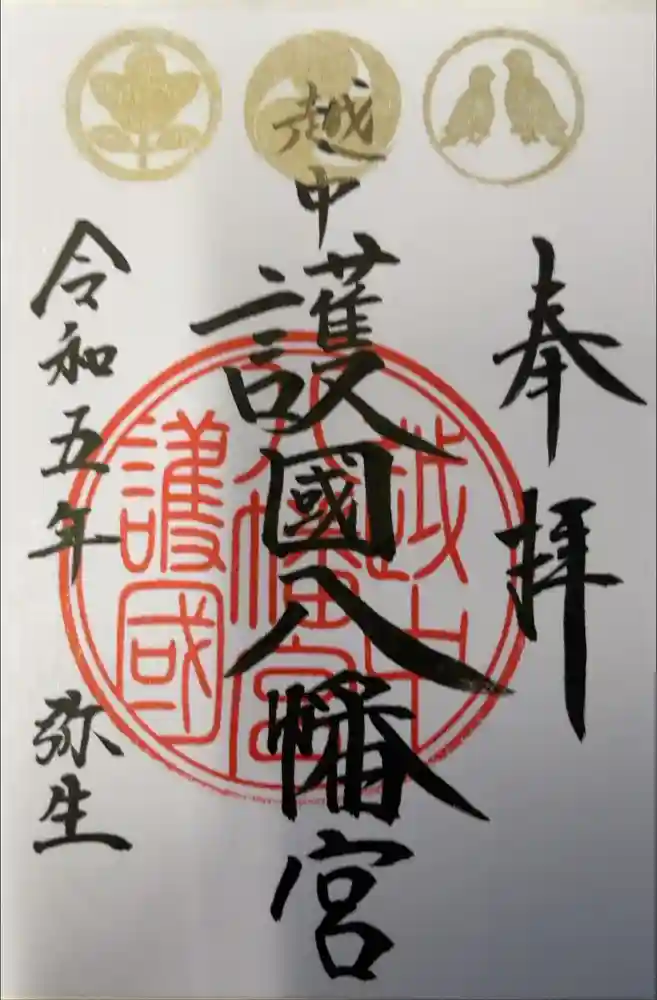 奉拝
越中
護國八幡宮
越中
八幡宮
護國
令和五年 弥生